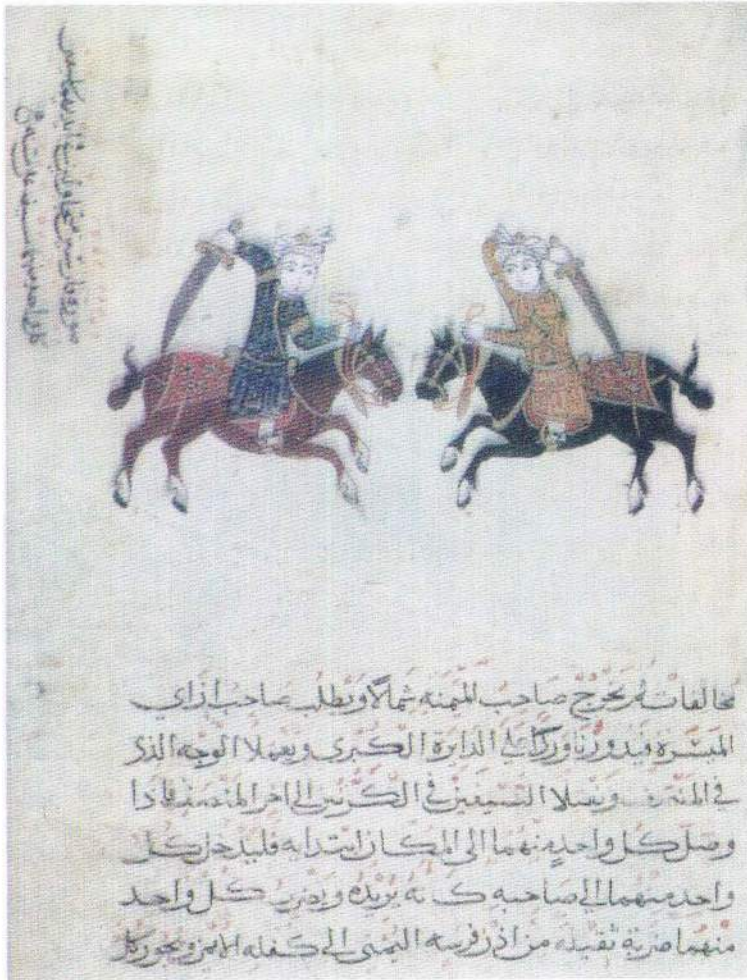 صورة فارسين
كل واحد سيف
مخالفات ثم يخرج صاحب الميمنه شمالا ويطلب صاحب ازاي
الميسرة فيدوران وركا على الدايرة الكبرى ويعملا الوجه الذى
في المنصرف ويعملا السيفين في الكرتين الى اخر المنصف فاذا
وصل كل واحد منهما الى المكان ابتدايه فليدخل كل
واحد منهما الى صاحبه كانه يريده ويضرب كل واحد
منهما ضربة ثقيله من اذن فرسه اليمنى الى كفله الايمن ويجوز كل